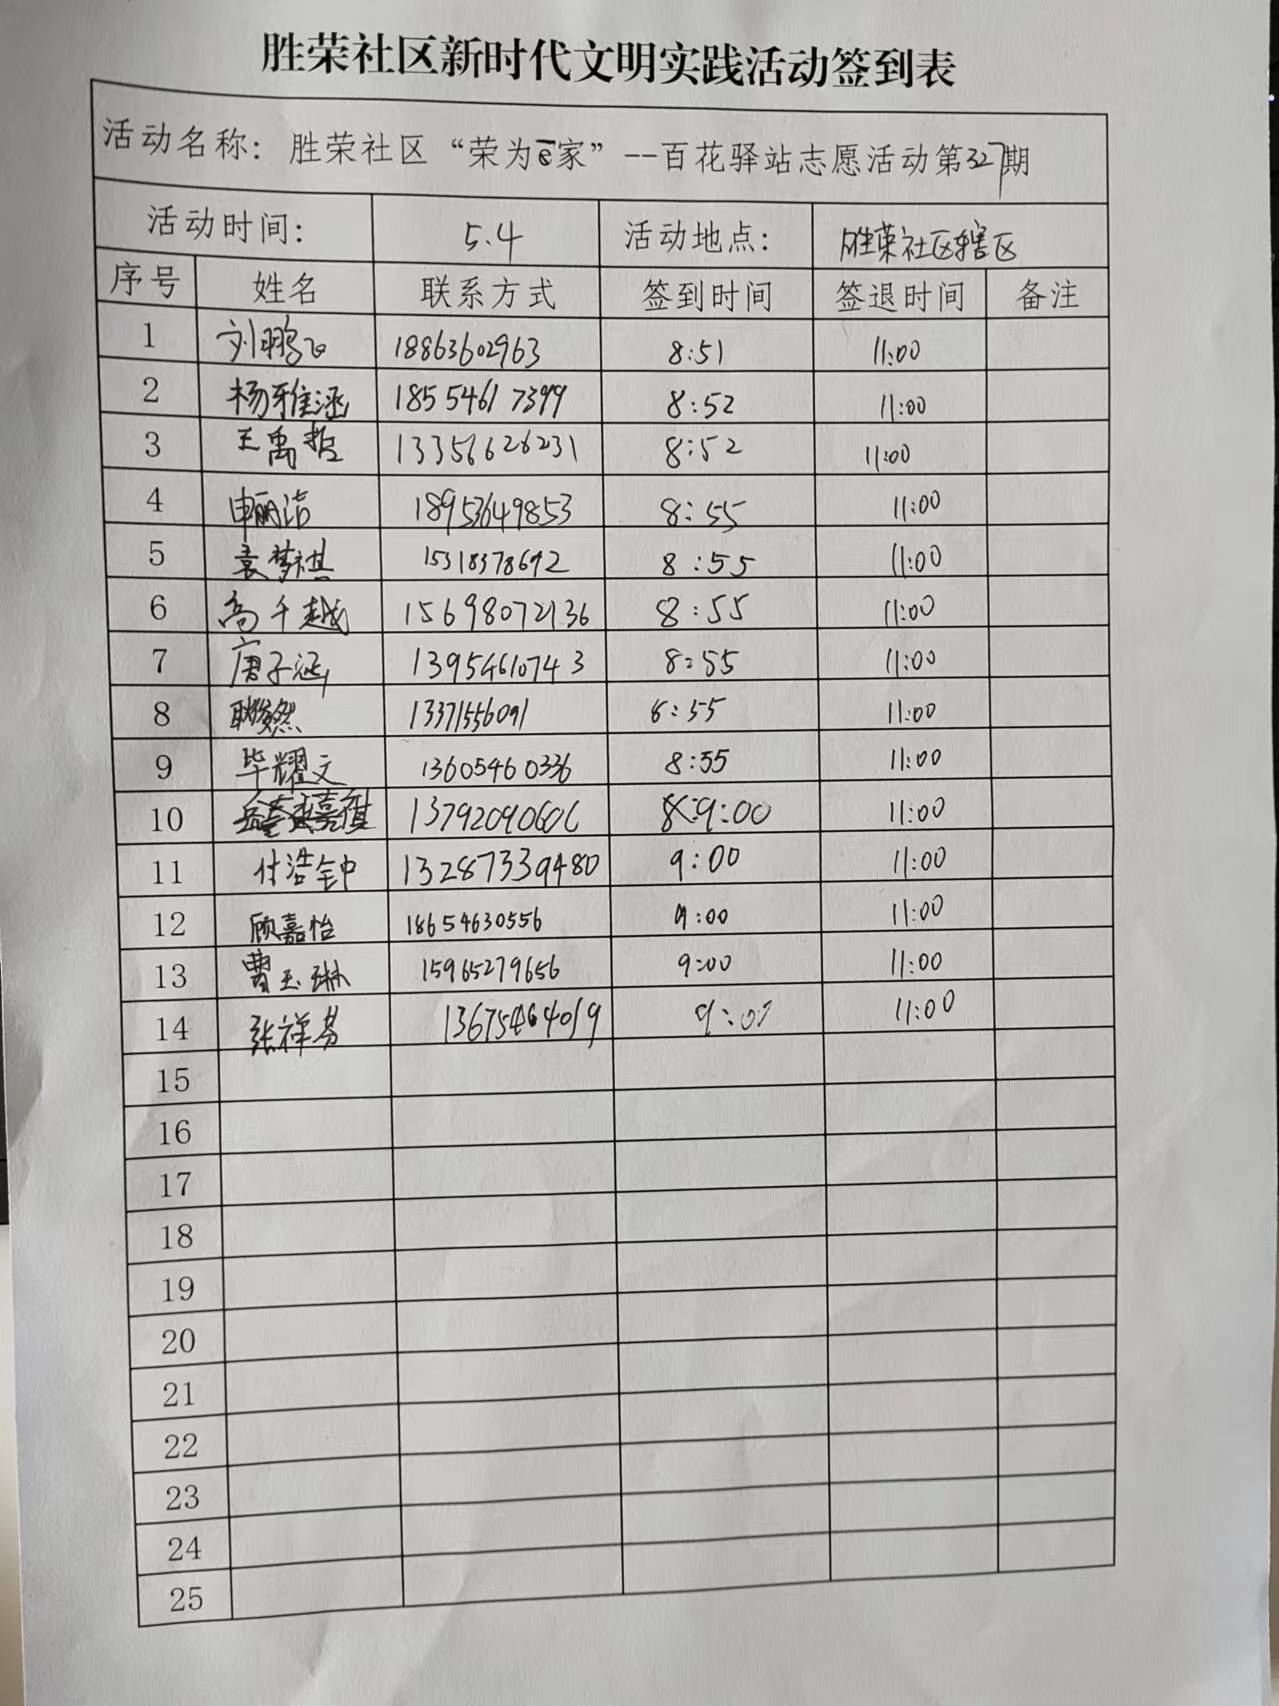 胜荣社区新时代文明实践活动签到表
活动名称：胜荣社区“荣为e家”--百花驿站志愿活动第327期
活动时间： 5.4 活动地点： 胜荣社区辖区
序号 姓名 联系方式 签到时间 签退时间 备注
1 刘鹏飞 18863602963 8:51 11:00
2 杨雅涵 18554617399 8:52 11:00
3 王禹哲 13356626231 8:52 11:00
4 申丽洁 18953649853 8:55 11:00
5 袁梦祺 15318378692 8:55 11:00
6 高千越 15698072136 8:55 11:00
7 唐子涵 13954610743 8:55 11:00
8 13371556091 8:55 11:00
9 毕耀文 13605460336 8:55 11:00
10 13792090606 9:00 11:00
11 付浩钟 13287339480 9:00 11:00
12 顾嘉怡 18654630556 9:00 11:00
13 曹玉琳 15965279656 9:00 11:00
14 11:00
15
16
17
18
19
20
21
22
23
24
25